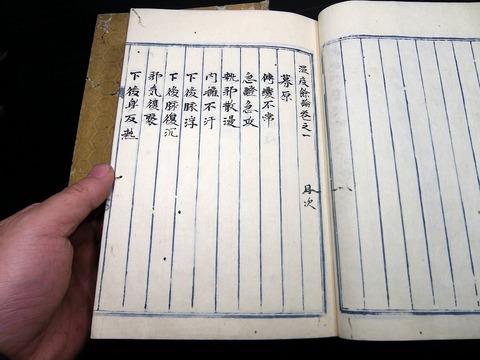 温疫餘論卷之一
目次
募原
傳變不常
急證急攻
熱邪散漫
内壅不汗
下後脉浮
下後脉復沉
邪氣復聚
下後身反熱